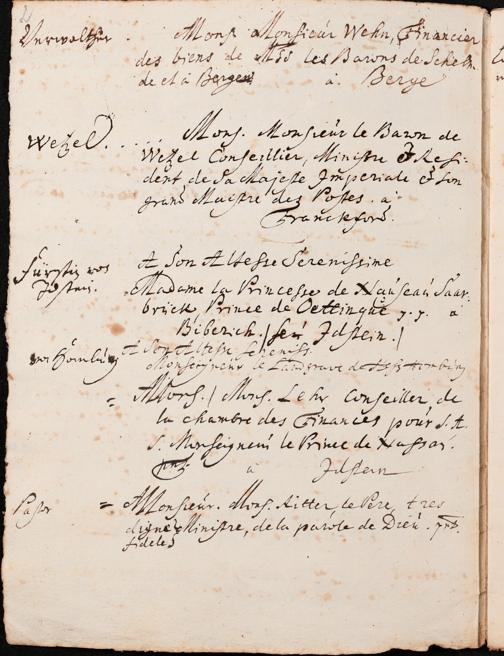 Verwalther . Monsr Monsieur Wehn, Financier
des biens de Mss les Barons de Schell.
de et à Berges à Berge
Wetzel. . . . Mons. Monsieur le Baron de
Wetzel Conseillier, Ministre & Resi-
dent de Sa Majeste Imperiale & son
grand Maistre des Postes. à
Franckford.
Fürstin von Idstein. A Son Altesse Serenissime
Madame la Princesse de Nassau Saar-
brück Prince de Oettingue à
Biberich. / seu Idstein. /
von Homburg A Son Altesse Sereniss.
Monseigneur le Landgrave de Homburg
= Mons. / Mons. Lehr Conseiller de
la chambre des Finances pour S. A.
S. Monseigneur le Prince de Nassau.
à Idstein
Pastor = A Monsieur. Mons. Ritter, le Pere, tres
digne Ministre, de la parole de Dieu.
fideles